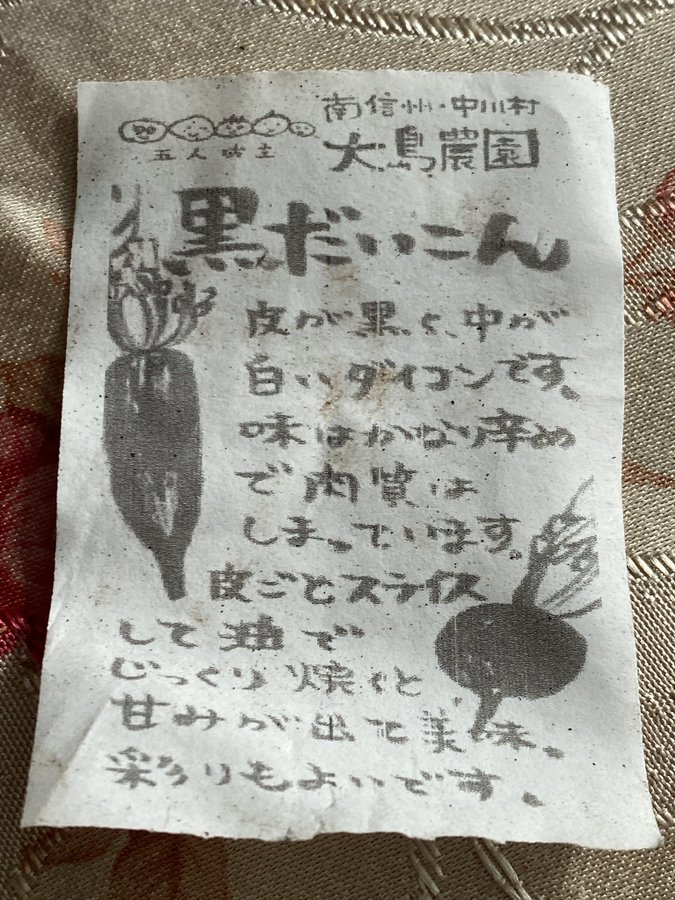 南信州・中川村
大島農園
黒だいこん
皮が黒く、中が
白いダイコンです。
味はかなり辛め
で肉質は
しまっています。
皮ごとスライス
して油で
じっくり焼くと
甘みが出て美味。
彩りもよいです。